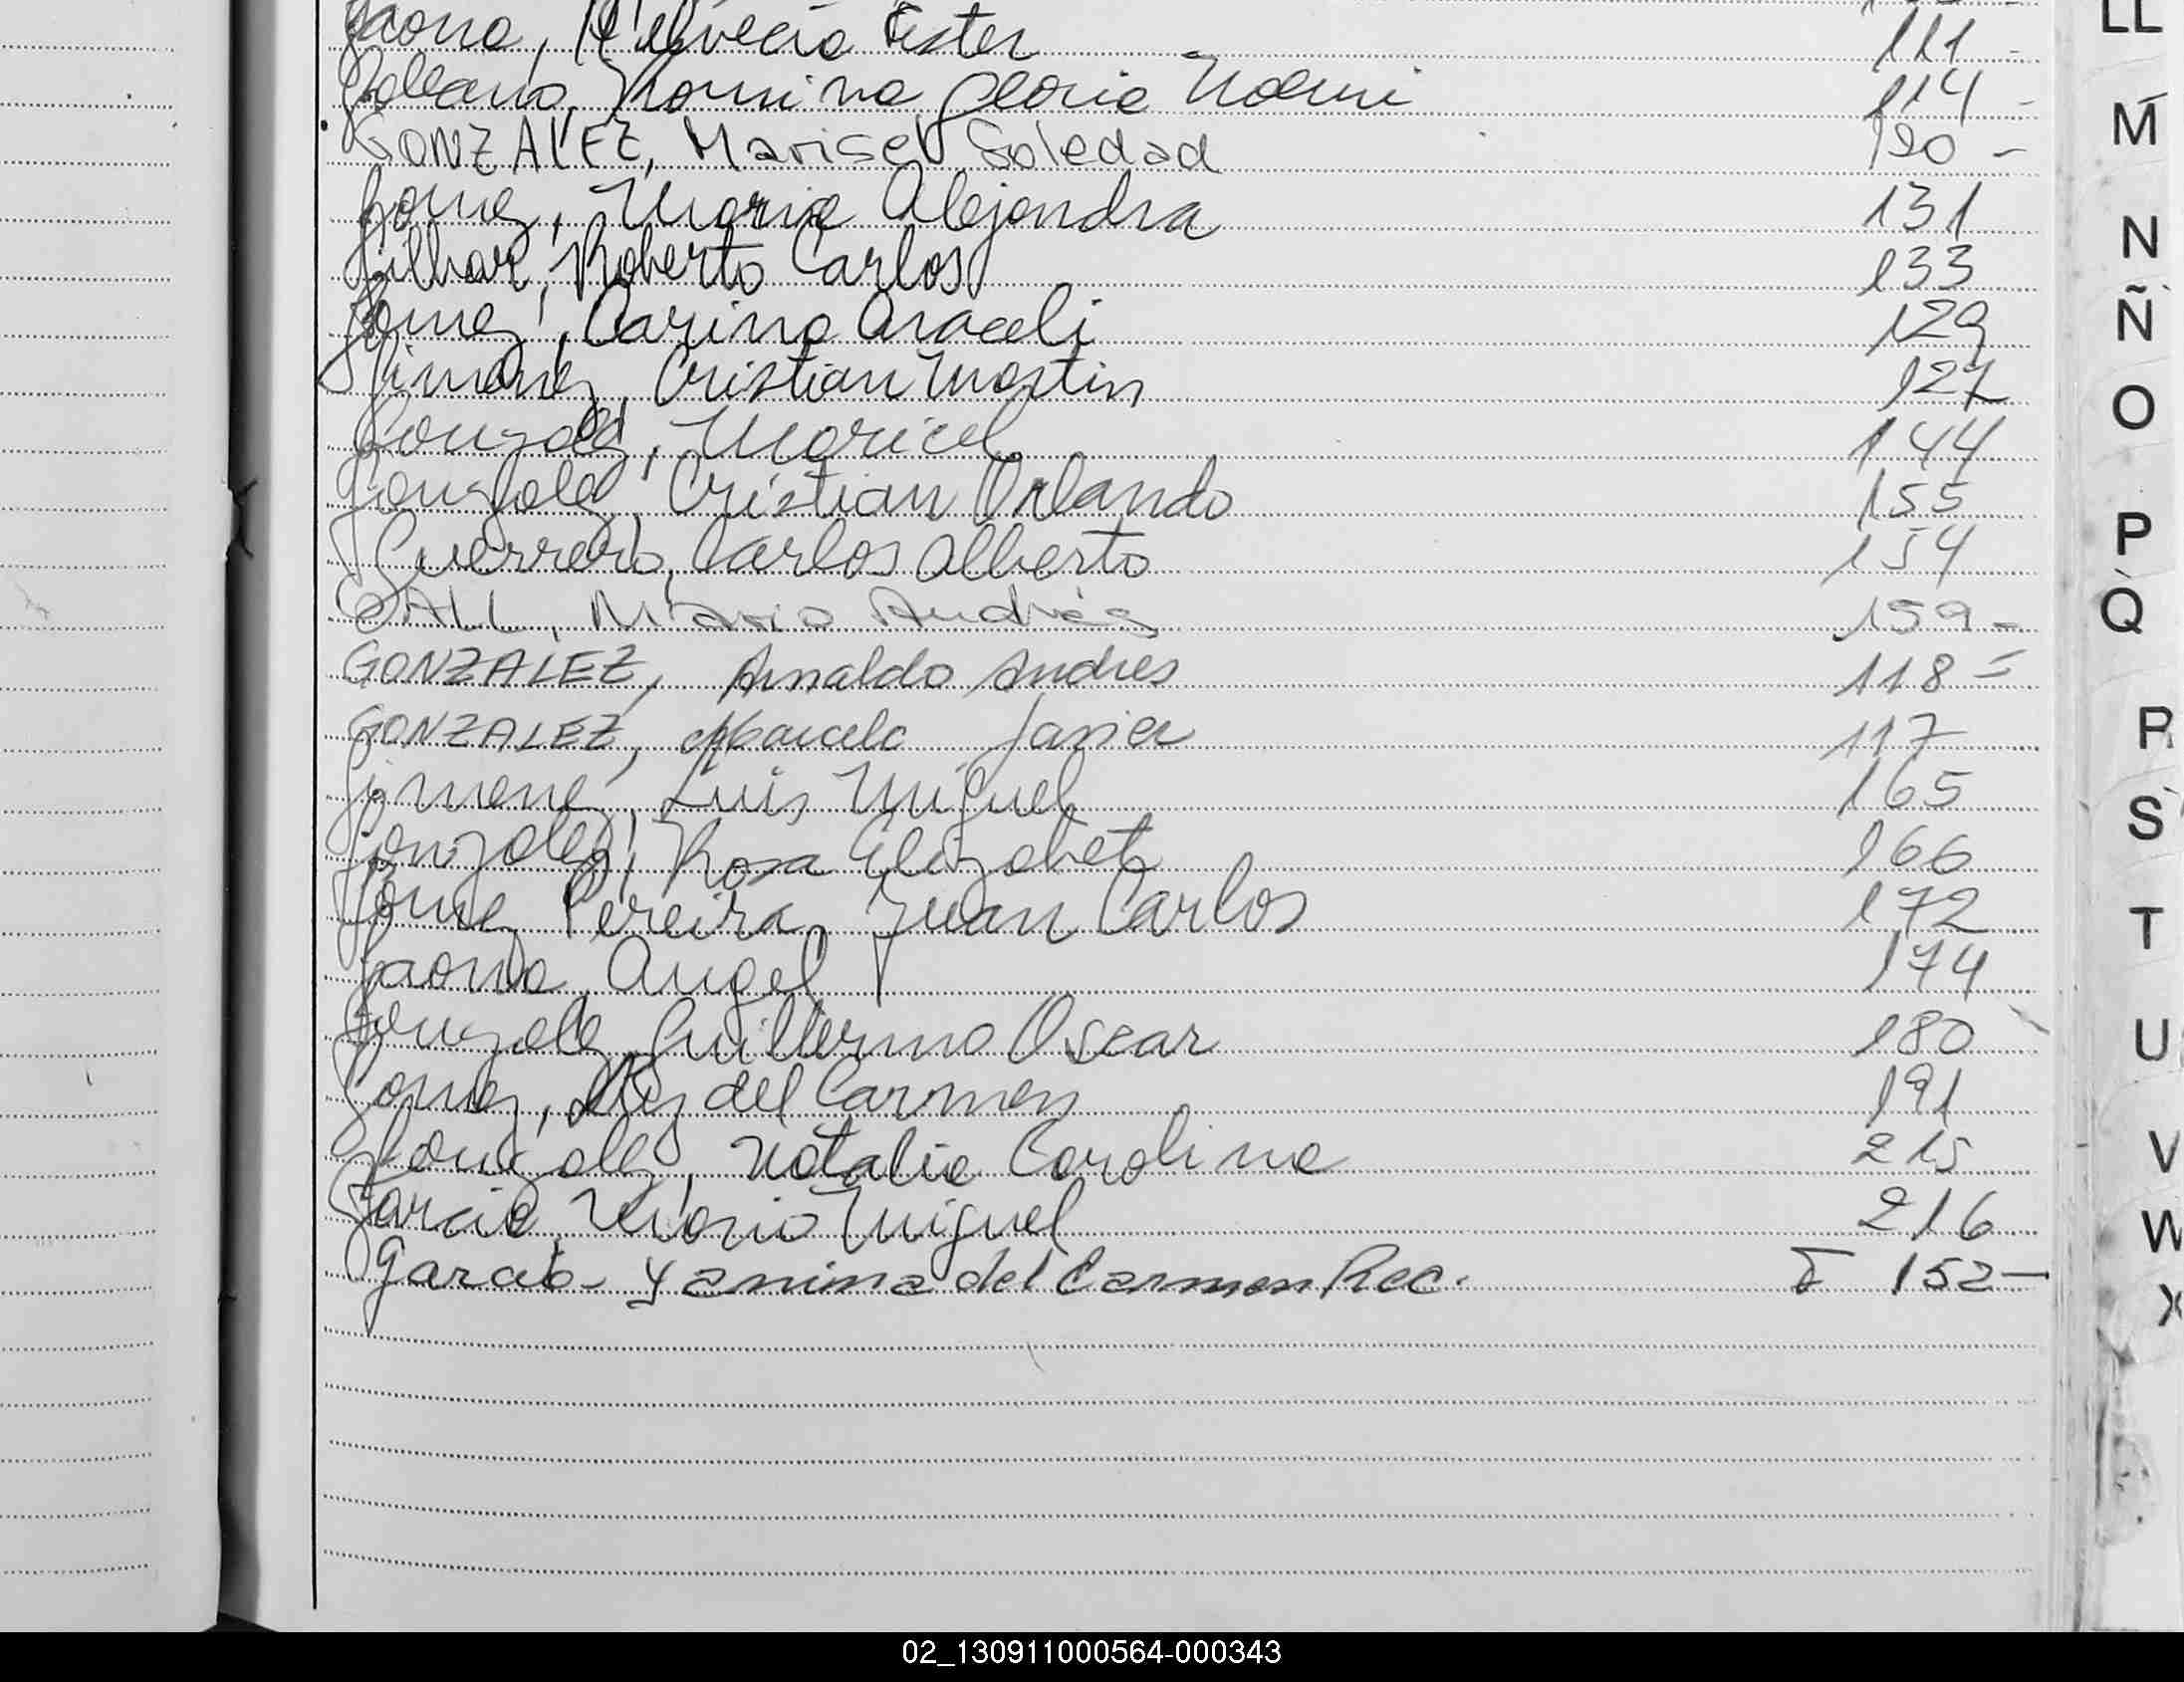 Gaona, Helvecia Ester 111 -
Romina Gloria Noemi 114 -
GONZALEZ, Marisel Soledad 120 -
Gomez, Maria Alejandra 131
Roberto Carlos 133
Gomez, Carina Araceli 129
Gimenez, Cristian Martin 127
Gonzalez, Maricel 144
Gonzalez, Cristian Orlando 155
Guerrero, Carlos Alberto 154
GALL, Mario Andrés 159 -
GONZALEZ, Arnaldo Andres 118 =
GONZALEZ, Marcelo Javier 117
Gimenez, Luis Miguel 165
Gonzalez, Rosa Elizabet 166
Gomez Pereira, Juan Carlos 172
Gaona, Angel 174
Gonzalez, Guillermo Oscar 180
Gomez, del Carmen 191
Gonzalez, Natalia Carolina 215
Garcia, Mario Miguel 216
Garcia - Yanina del Carmen Rec. 152 -
LL
M
N
Ñ
O
P
Q
R
S
T
U
V
W
X
02_130911000564-000343